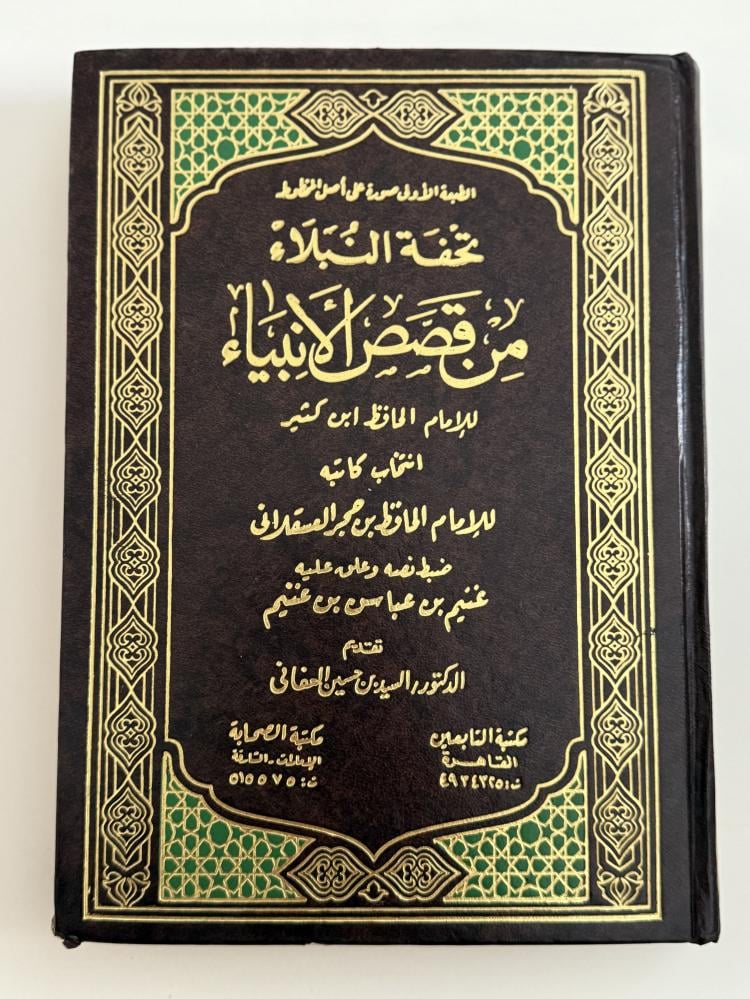 الطبعة الأولى صورة على أصل المخطوط
تحفة النبلاء
مِن قصَصِ الأنبيَاء
للإمام الحافظ ابن كثير
انتخاب كاتبه
للإمام الحافظ بن حجر العسقلاني
ضبط نصه وعلق عليه
غنيم بن عباس بن غنيم
تقديم
الدكتور/ السيد بن حسين العفاني
مكتبة التابعين
القاهرة
ت: ٤٩٣٤٣٢٥
مكتبة الصحابة
الإمارات - الشارقة
ت: ٥١٥٥٧٥